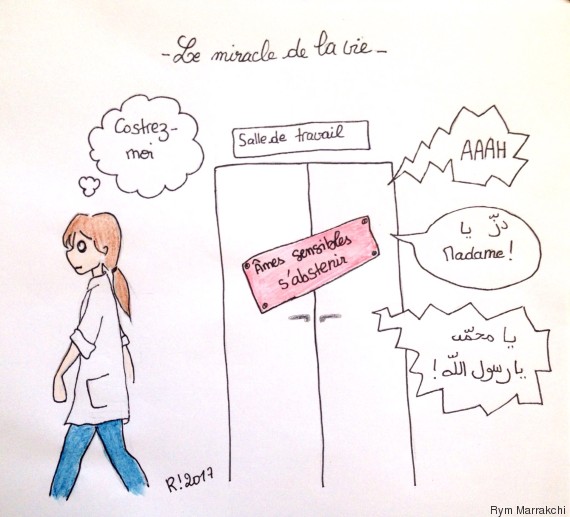 - Le miracle de la vie -
Costrez-
moi
Salle de travail
AAAH
Âmes sensibles
s'abstenir
دزّ يا
Madame !
يا محمّد
يا رسول اللّه !
R!2017
Rym Marrakchi